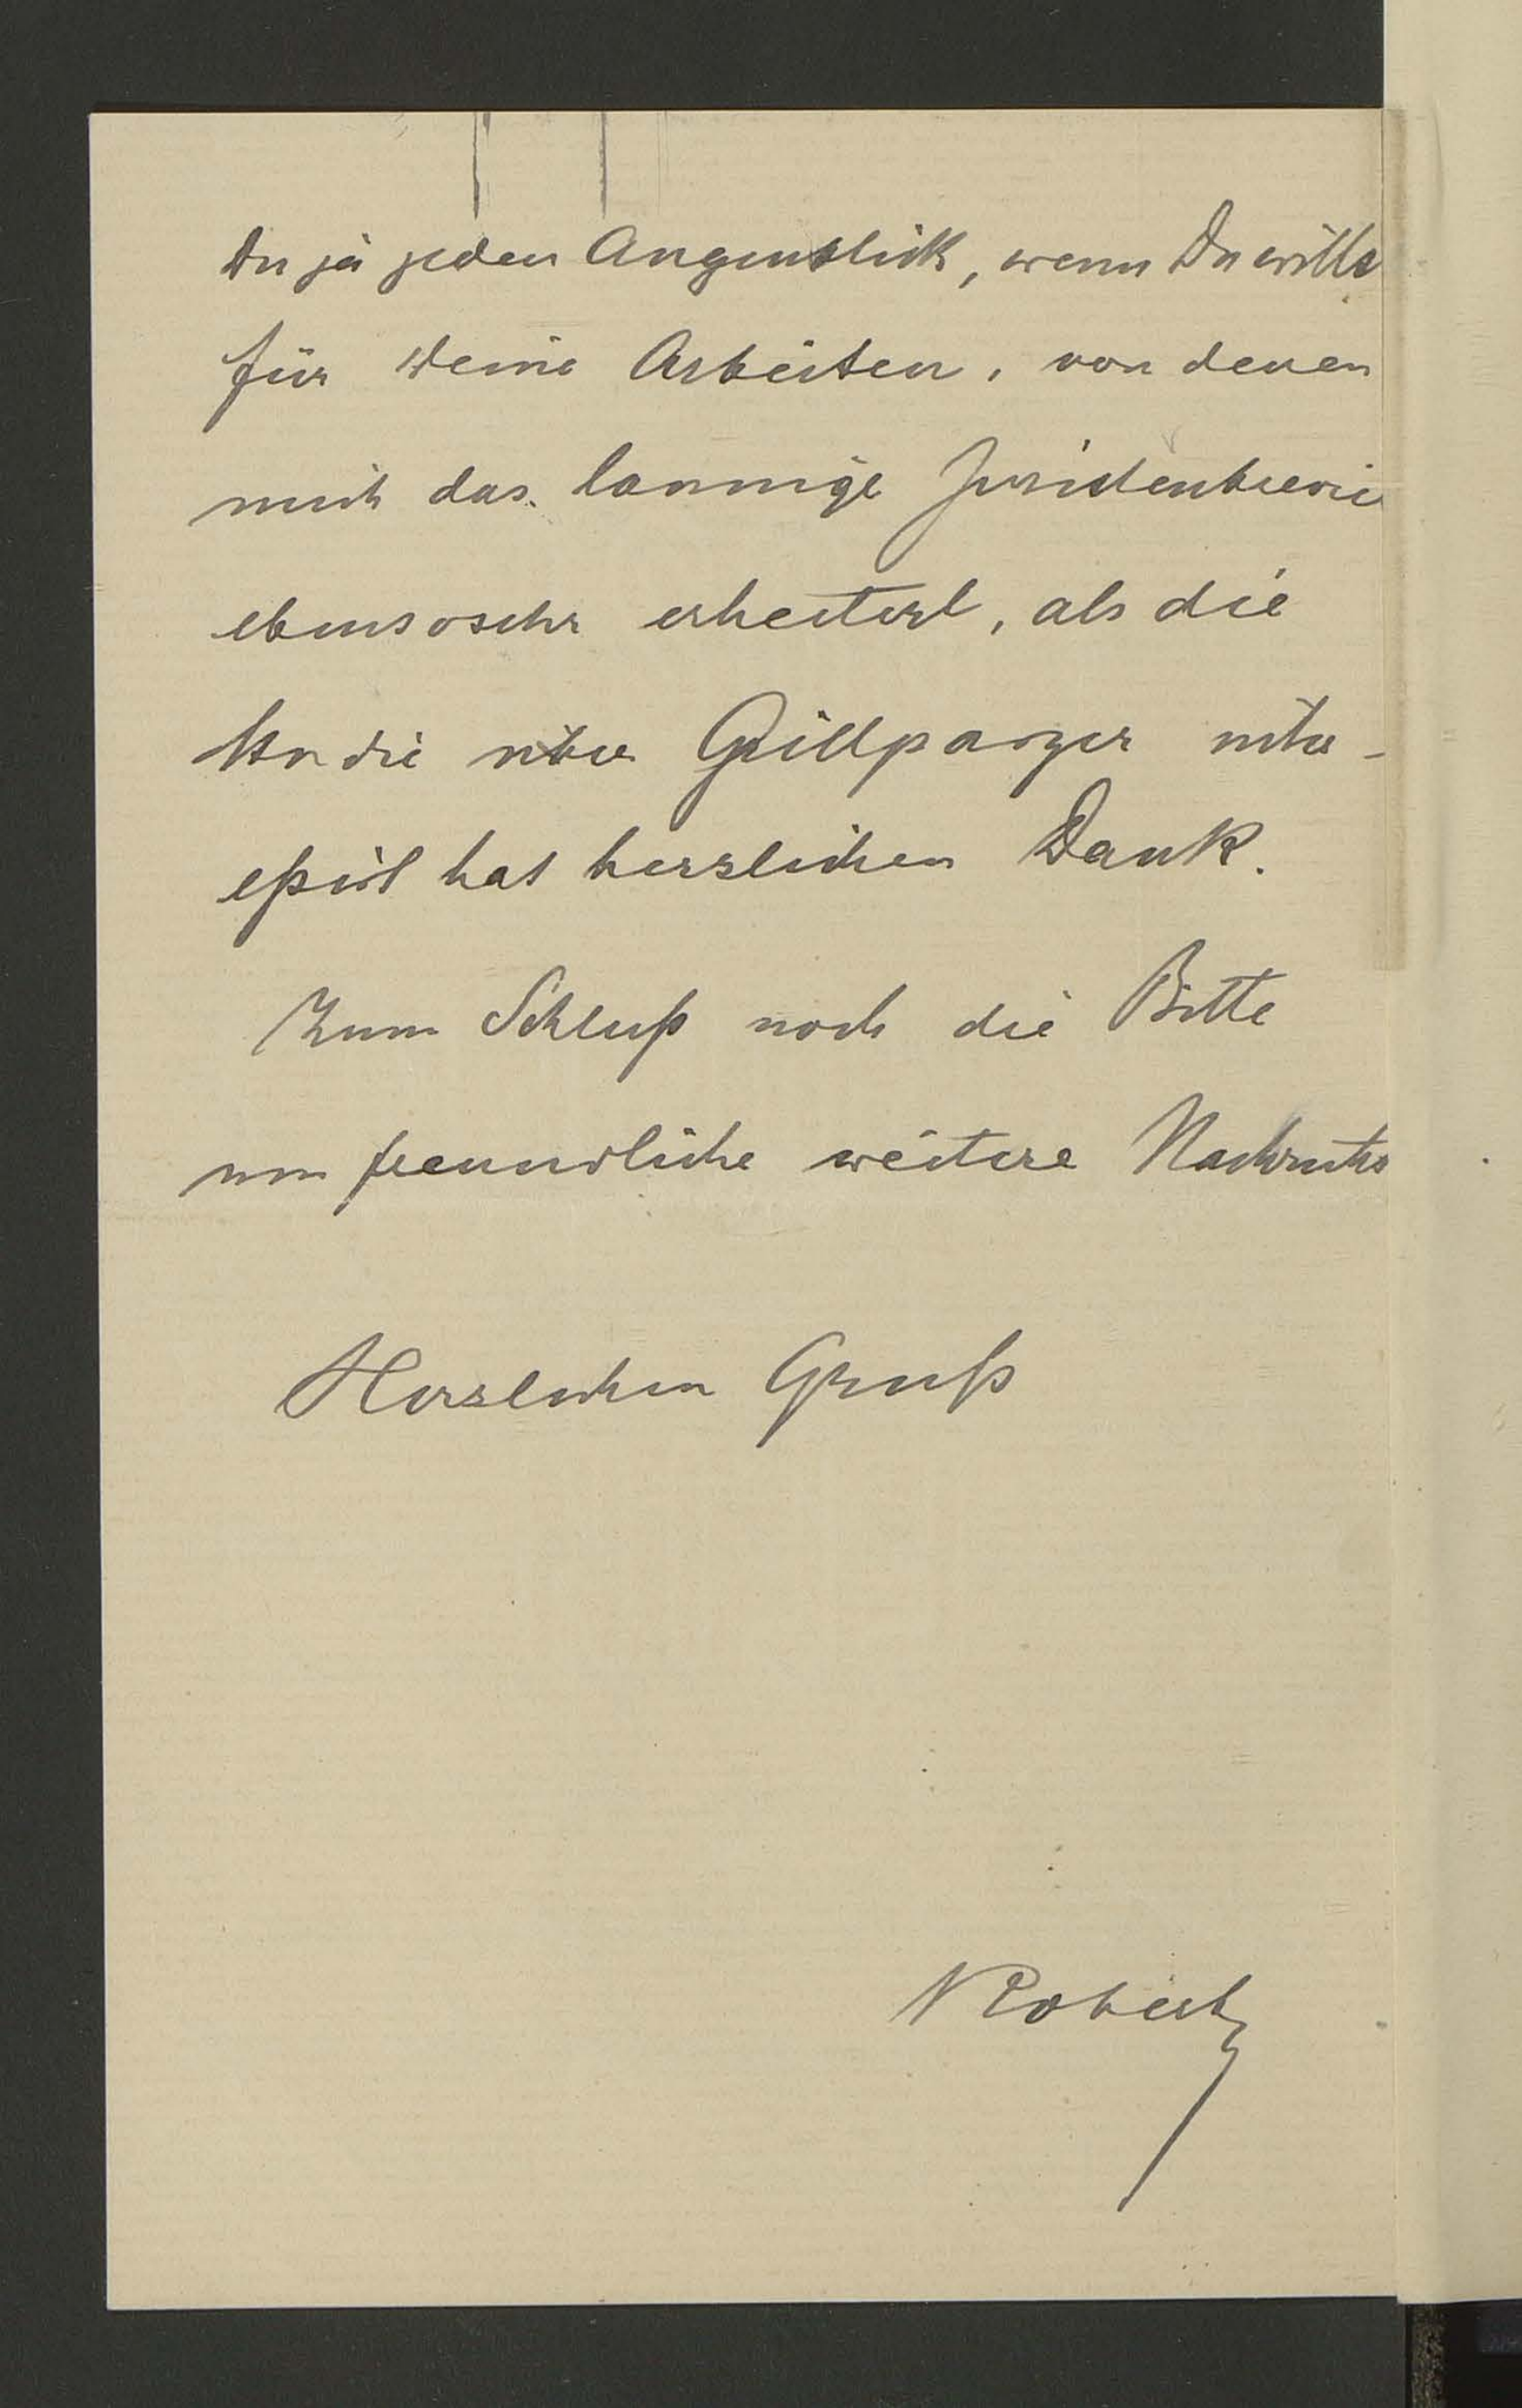 Du ja jeden Augenblick, wenn Du wills
für Deine Arbeiten, von denen
mich das launige Juristenbrevie
ebensosehr erheitert, als die
Studie über Grillparzer inter-
eßirt hat herzlichen Dank.
Zum Schluß noch die Bitte
um freundliche weitere Nachricht
Herzlichen Gruß
Robert